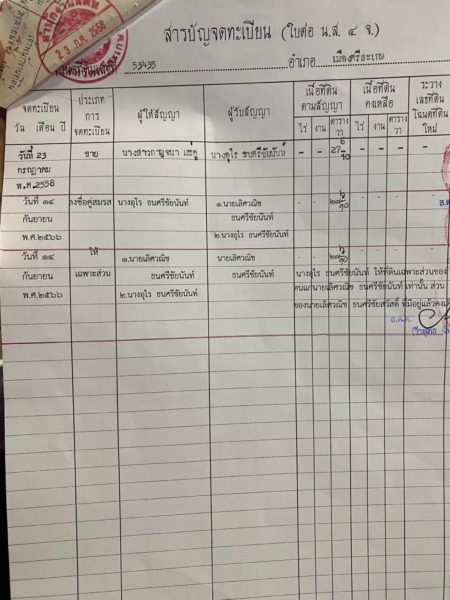 สารบัญจดทะเบียน (ใบต่อ น.ส. ๔ จ.)
๒๓ ก.ค. ๒๕๕๘
53435 อำเภอ เมืองศรีสะเกษ
จดทะเบียน วัน เดือน ปี
ประเภท การ จดทะเบียน
ผู้ให้สัญญา
ผู้รับสัญญา
เนื้อที่ดิน ตามสัญญา
เนื้อที่ดิน คงเหลือ
ระวาง เลขที่ดิน โฉนดที่ดิน ใหม่
ไร่ งาน ตาราง วา ไร่ งาน ตาราง วา
วันที่ 23 ขาย นางสาวกาญจนา นางอุไร ธนศรีชัยนันท์ - - 27 6/10 - - - -
กรกฎาคม
พ.ศ.2558
วันที่ ๑๔ ลงชื่อคู่สมรส นางอุไร ธนศรีชัยนันท์ ๑.นายเลิศวณิช - - ๒๗ ๖/๑๐ - - -
กันยายน ธนศรีชัยนันท์
พ.ศ.๒๕๖๖ ๒.นางอุไร ธนศรีชัยนันท์
วันที่ ๑๔ ให้ ๑.นายเลิศวณิช นายเลิศวณิช - - ๒๗ ๖/๑๐ - - -
กันยายน เฉพาะส่วน ธนศรีชัยนันท์ ธนศรีชัยนันท์ นางอุไร ธนศรีชัยนันท์ ให้ที่ดินเฉพาะส่วนของ
พ.ศ.๒๕๖๖ ๒.นางอุไร ธนศรีชัยนันท์ ตนแก่นายเลิศวณิช ธนศรีชัยนันท์ เท่านั้น ส่วน
ของนายเลิศวณิช ธนศรีชัยสวัสดิ์ ที่มีอยู่แล้วคง